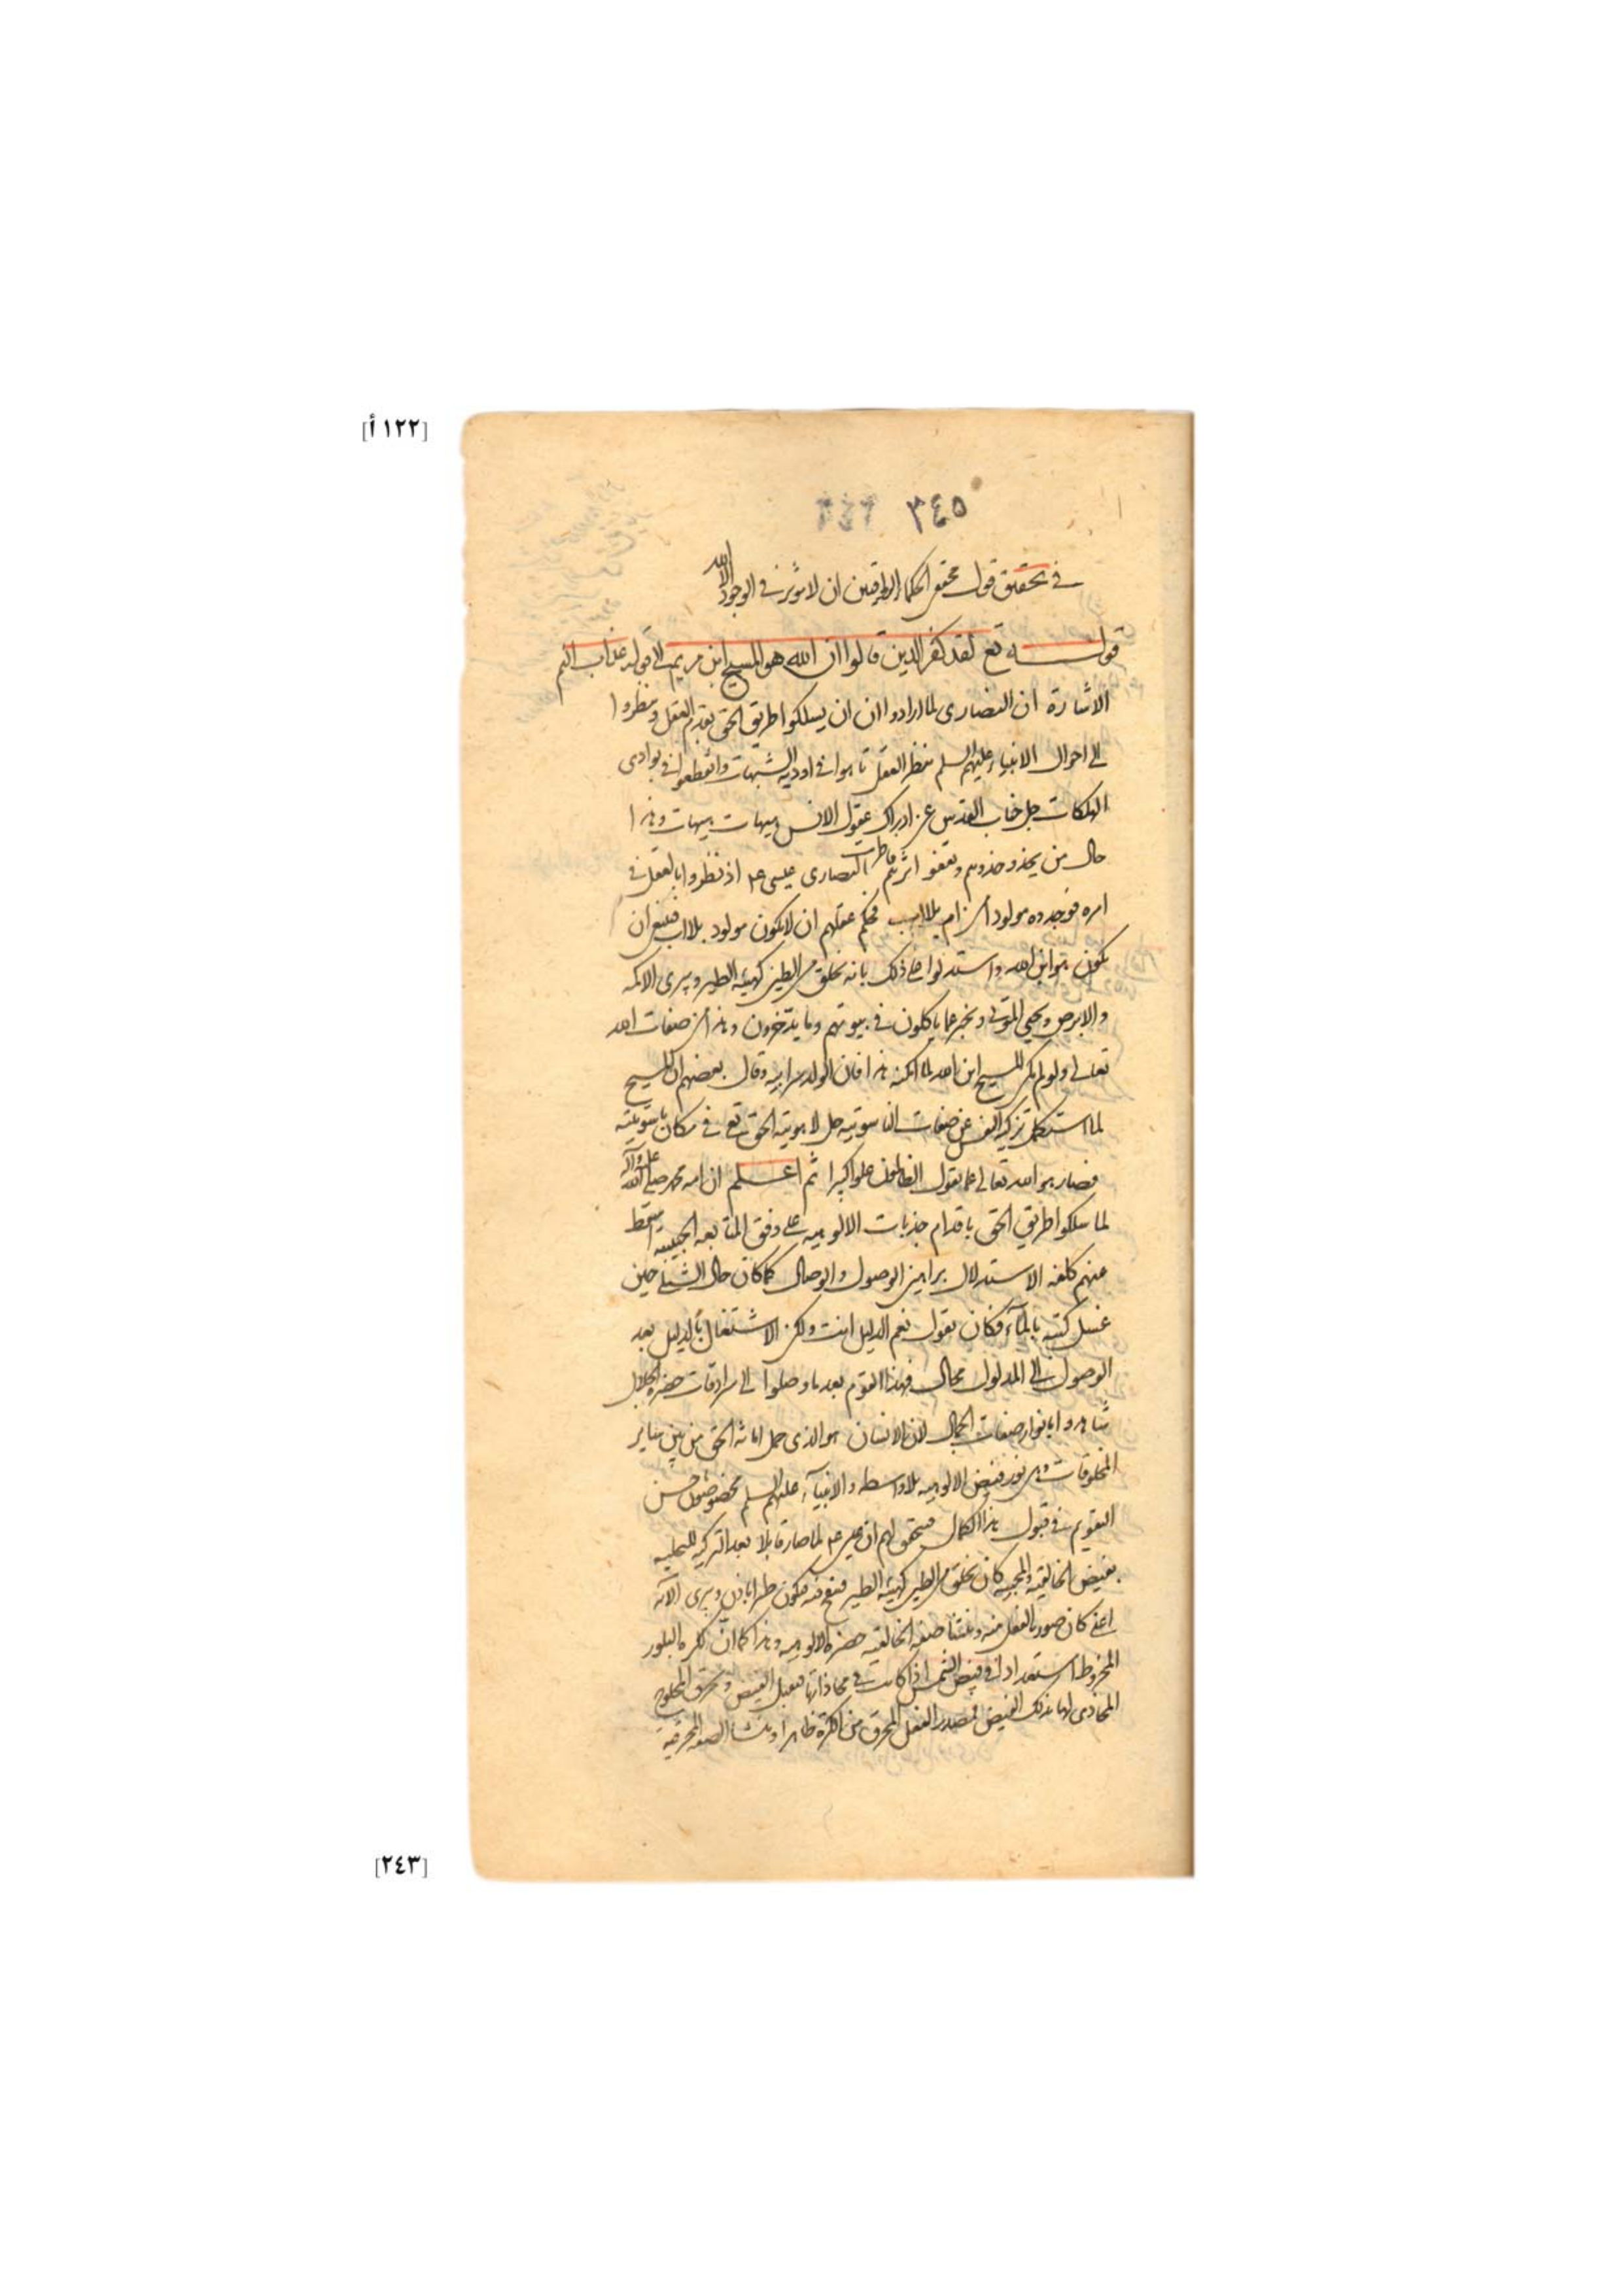 [١٢٢ أ]
٣٤٥
في تحقيق قول محققي الحكماء ان لا مؤثر في الوجود الا الله
قوله تع لقد كفر الذين قالوا ان الله هو المسيح ابن مريم الى قوله عذاب اليم
الاشارة ان النصارى لما ارادوا ان ان يسلكوا طريق الحق بقدم العقل ونظروا
الى احوال الانبياء عليهم السلم بنظر العقل تاهوا في اودية الشبهات وانقطعوا في بوادى
الهلكات جل جناب القدس عن ادراك عقول الانس هيهات هيهات وهذا
حال من يحذو حذوهم ويقفو اثرهم النصارى عيسى ع اذ نظروا بالعقل في
امره فوجدوه مولودا من ام بلا اب فحكم عقلهم ان لا يكون مولود بلا اب فينبغي ان
يكون هو ابن الله واستدلوا على ذلك بانه يخلق من الطين كهيئة الطير ويبرى الاكمه
والابرص ويحيي الموتى ويخبر عما ياكلون في بيوتهم وما يدخرون وهذا من صفات الله
تعالى ولو لم يكن المسيح ابن الله لما امكنه هذا فان الولد سر ابيه وقال بعضهم ان المسيح
لما استكمل تزكية النفس عن صفات الناسوتيه حل لاهوتية الحق تع في مكان ناسوتيته
فصار هو الله تعالى عما يقول الظالمون علوا كبيرا ثم اعلم ان امة محمد صلى الله عليه وآله
لما سلكوا طريق الحق باقدام جذبات الالوهيه على وفق المتابعه الحبيبيه اسقط
عنهم كلفه الاستدلال براهين الوصول والوصال كما كان حال الشبلي حين
غسل كتبه بالماء وكان يقول نعم الدليل انت ولكن الاشتغال بالدليل بعد
الوصول الى المدلول محال فهذا القوم بعد ما وصلوا الى سرادقات حضرة الجلال
شاهدوا بانوار صفات الجمال لان الانسان هو الذى حمل امانة الحق من بين سائر
المخلوقات وهي نور فيض الالوهيه بلا واسطه والانبياء عليهم السلم مخصوصون حسن
التقويم في قبول هذا الكمال فتحقق لهم ان عيسى ع لما صار قابلا بعد التزكيه للتحليه
بفيض الخالقيه والمحييه كان يخلق من الطين كهيئة الطير فينفخ فيه فيكون طيرا باذن ويبرى الاكمه
اعني كان صورة الفعل منه ومنشا صفة الخالقيه حضرة الالوهيه وهذا كما ان لكرة البلور
المخروط استعدادا في فيض الشمس اذا كانت في محاذاتها فتقبل الفيض وتحرق المحلوج
المحاذى لها بذلك الفيض فمصدر الفعل المحرق من الكرة ظاهرا ومنشا الصفة المحرقية
[٢٤٣]